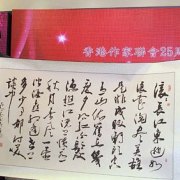 香港作家聯會25周
滚滚長江東逝
水浪花淘盡英雄
是非成敗轉頭空
青山依舊在幾
度夕陽紅白髮
漁樵江渚上慣看
秋月春風一壺
濁酒喜相逢古今
多少事都付笑
談中